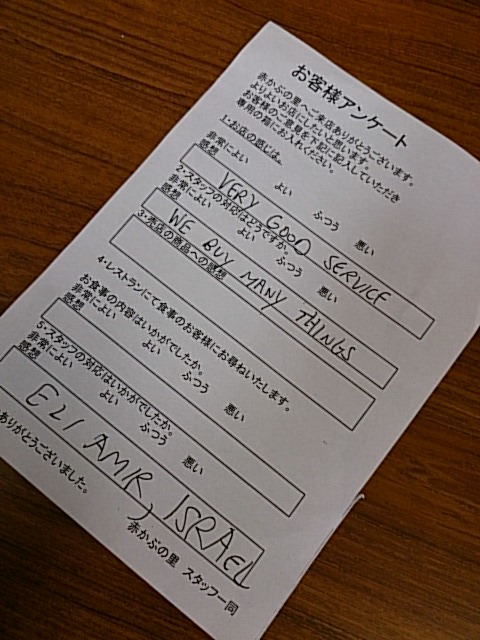 お客様アンケート
赤かぶの里へご来店ありがとうございます。
よりよいお店にしたいと思います。
お客様のご意見を下記に記入していただき
専用の箱にお入れください。
1・お店の感じは。
非常によい よい ふつう 悪い
感想
VERY GOOD SERVICE
2・スタッフの対応はどうですか。
非常によい よい ふつう 悪い
感想
WE BUY MANY THINGS
3・売店の商品への感想
4・レストランにて食事のお客様にお尋ねいたします。
お食事の内容はいかがでしたか。
非常によい よい ふつう 悪い
感想
5・スタッフの対応はいかがでしたか。
非常によい よい ふつう 悪い
感想
ELI AMIR, ISRAEL
ありがとうございました。
赤かぶの里 スタッフ一同